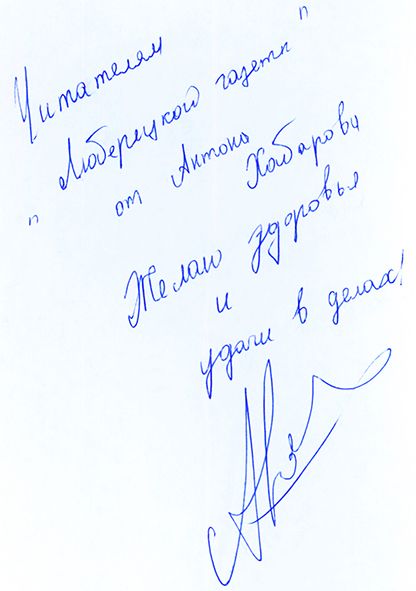 Читателям
"Люберецкой газеты"
от Антона Хабарова
Желаю здоровья
и
удачи в делах!